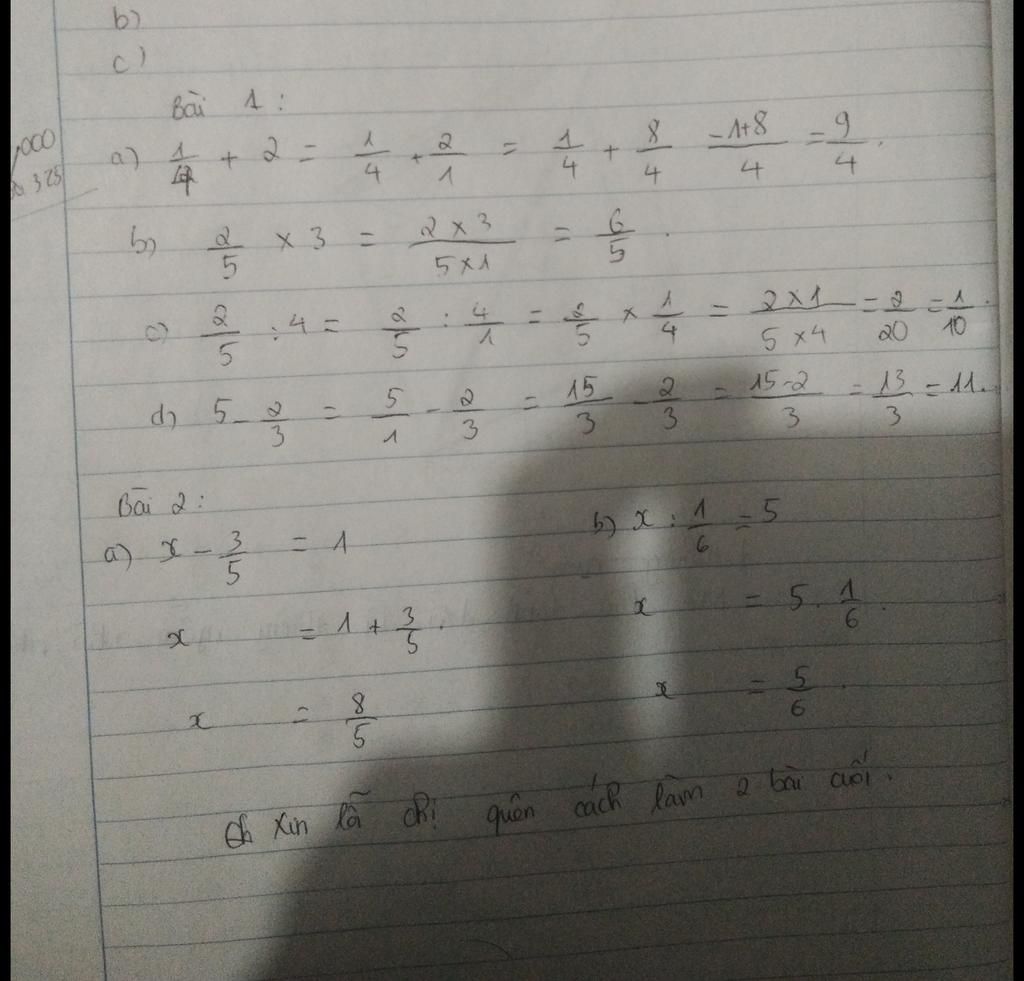 b)
c)
,000
325
Bài 1:
a) 1/4 + 2 = 1/4 + 2/1 = 1/4 + 8/4 = 1+8/4 = 9/4.
b) 2/5 × 3 = 2×3/5×1 = 6/5.
c) 2/5 : 4 = 2/5 : 4/1 = 2/5 × 1/4 = 2×1/5×4 = 2/20 = 1/10.
d) 5 - 2/3 = 5/1 - 2/3 = 15/3 - 2/3 = 15-2/3 = 13/3 = 11.
Bài 2:
a) x - 3/5 = 1 b) x : 1/6 = 5
x = 1 + 3/5. x = 5. 1/6.
x = 8/5 x = 5/6.
Xin lỗi chị quên cách làm 2 bài cuối.